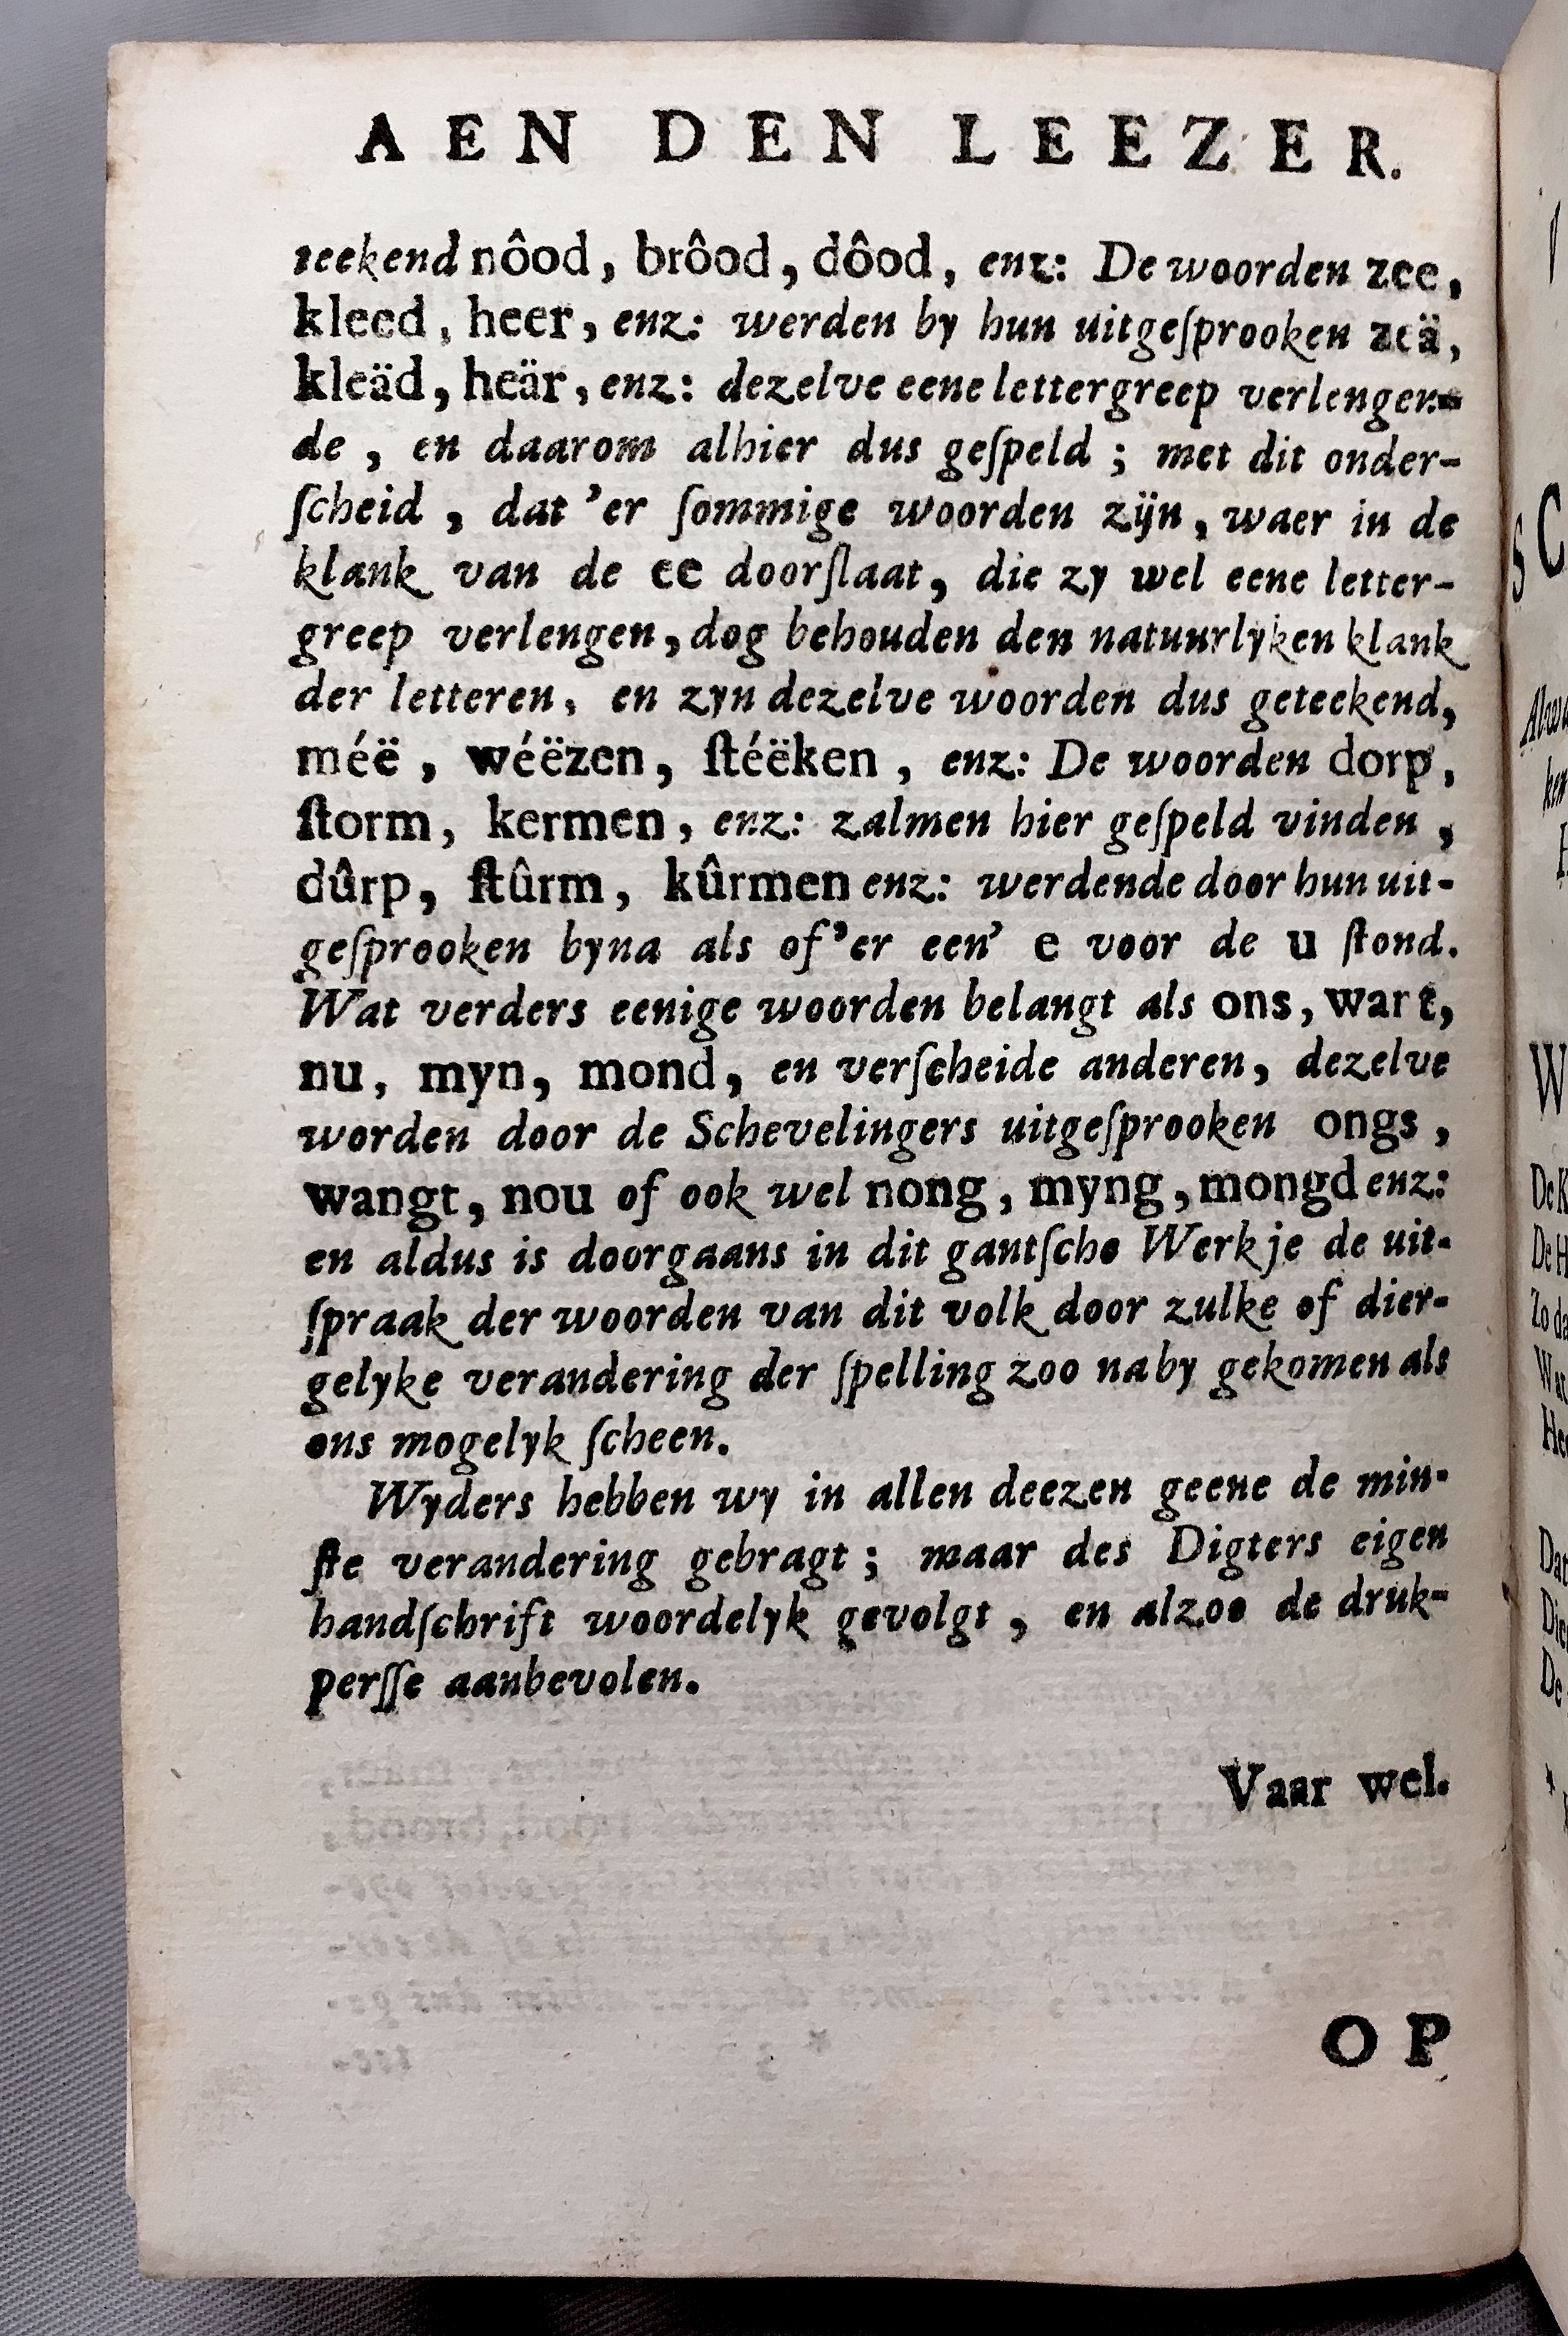 AEN DEN LEEZER.
teekend nôod, brôod, dôod, enz: De woorden zee,
kleed, heer, enz: werden by hun uitgeſprooken zeä,
kleäd, heär, enz: dezelve eene lettergreep verlengen-
de, en daarom alhier dus geſpeld; met dit onder-
ſcheid, dat 'er ſommige woorden zÿn, waer in de
klank van de ee doorſlaat, die zy wel eene letter-
greep verlengen, dog behouden den natuurlyken klank
der letteren, en zyn dezelve woorden dus geteekend,
méë, wéëzen, ſtéëken, enz: De woorden dorp,
ſtorm, kermen, enz: zalmen hier geſpeld vinden,
dûrp, ſtûrm, kûrmen enz: werdende door hun uit-
geſprooken byna als of 'er een' e voor de u ſtond.
Wat verders eenige woorden belangt als ons, want,
nu, myn, mond, en verſcheide anderen, dezelve
worden door de Schevelingers uitgeſprooken ongs,
wangt, nou of ook wel nong, myng, mongd enz:
en aldus is doorgaans in dit gantſche Werkje de uit-
ſpraak der woorden van dit volk door zulke of dier-
gelyke verandering der ſpelling zoo naby gekomen als
ons mogelyk ſcheen.
Wyders hebben wy in allen deezen geene de min-
ſte verandering gebragt; maar des Digters eigen
handſchrift woordelyk gevolgt, en alzoo de druk-
perſſe aanbevolen.
Vaar wel.
OP